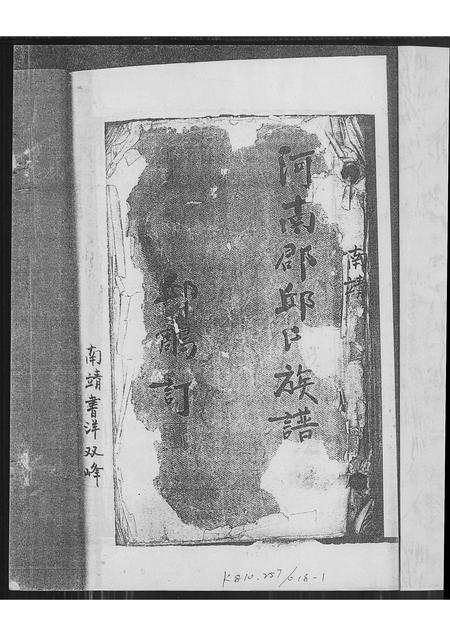 南靖
河南郡邱氏族譜
邱鷮訂
南靖書洋双峰
K810.257/618-1